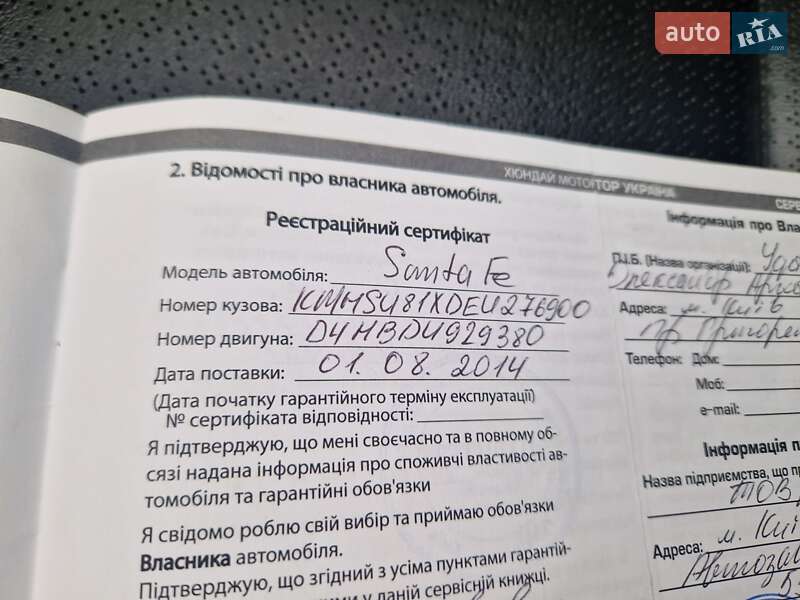 auto RIA.com
ХЮНДАЙ МОТОР УКРАЇНА
СЕРВ
2. Відомості про власника автомобіля.
Реєстраційний сертифікат
Модель автомобіля: Santa Fe
Номер кузова: KMHSU81XDEU276900
Номер двигуна: D4HBDU929380
Дата поставки: 01. 08. 2014
(Дата початку гарантійного терміну експлуатації)
№ сертифіката відповідності:
Я підтверджую, що мені своєчасно та в повному об-
сязі надана інформація про споживчі властивості ав-
томобіля та гарантійні обов'язки
Я свідомо роблю свій вибір та приймаю обов'язки
Власника автомобіля.
Підтверджую, що згідний з усіма пунктами гарантій-
у даній сервісній книжці.
Інформація про Вла
П.І.Б. (Назва організації):
Олександр
Адреса: м. Київ
Телефон: Дом:
Моб:
e-mail:
Інформація п
Назва підприємства, що пр
ТОВ
Адреса: м. Киї
Автозав